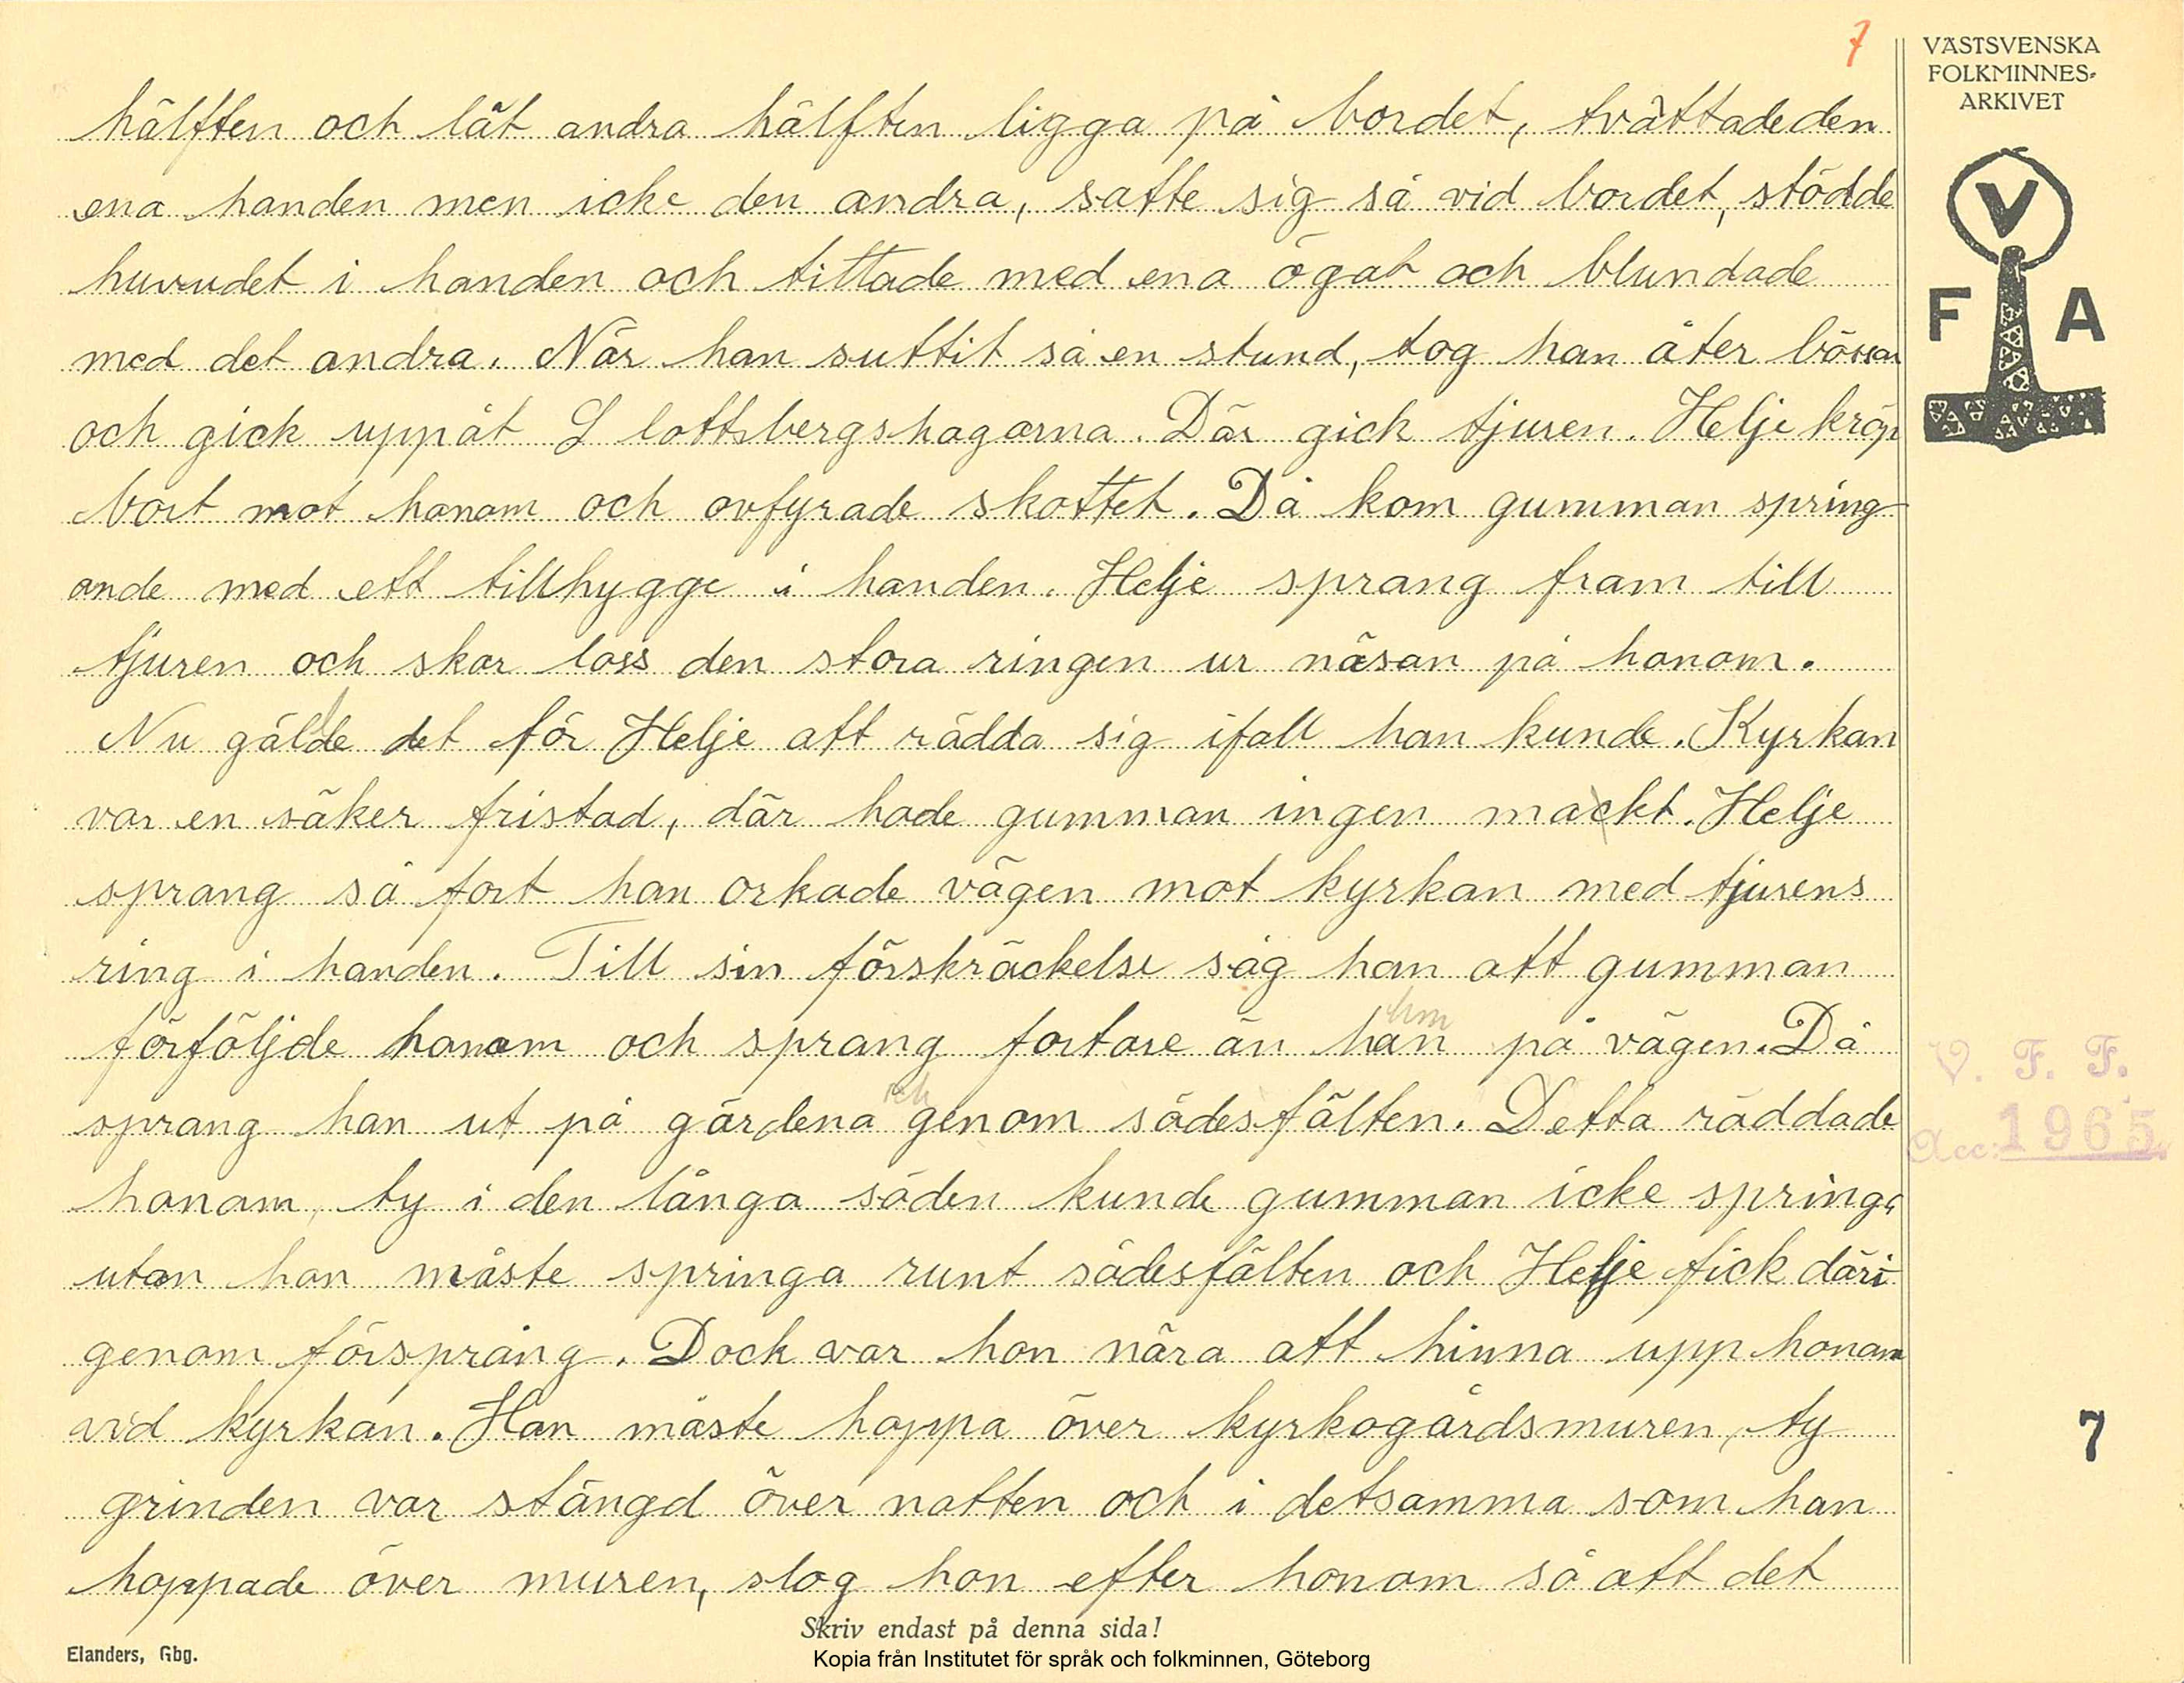 7
VÄSTSVENSKA
FOLKMINNES-
ARKIVET
V
F A
hälften och lät andra hälften ligga på bordet, tvättade den
ena handen men icke den andra, satte sig så vid bordet, stödde
huvudet i handen och tittade med ena ögat och blundade
med det andra. När han suttit så en stund, tog han åter bössan
och gick uppåt Slottsbergshagarna. Där gick tjuren. Helje kröp
bort mot honom och avfyrade skottet. Då kom gumman spring-
ande med ett tillhygge i handen. Helje sprang fram till
tjuren och skar loss den stora ringen ur näsan på honom.
Nu gällde det för Helje att rädda sig ifall han kunde. Kyrkan
var en säker fristad, där hade gumman ingen mackt. Helje
sprang så fort han orkade vägen mot kyrkan med tjurens
ring i handen. Till sin förskräckelse såg han att gumman
förföljde honom och sprang fortare än han på vägen. Då
sprang han ut på gärdena och genom sädesfälten. Detta räddade
honom, ty i den långa säden kunde gumman icke springa
utan hon måste springa runt sädesfälten och Helje fick däri-
genom försprång. Dock var hon nära att hinna upp honom
vid kyrkan. Han måste hoppa över kyrkogårdsmuren, ty
grinden var stängd över natten och i detsamma som han
hoppade över muren, slog hon efter honom så att det
V. F. F.
Acc: 1965
7
Skriv endast på denna sida!
Elanders, Gbg.
Kopia från Institutet för språk och folkminnen, Göteborg